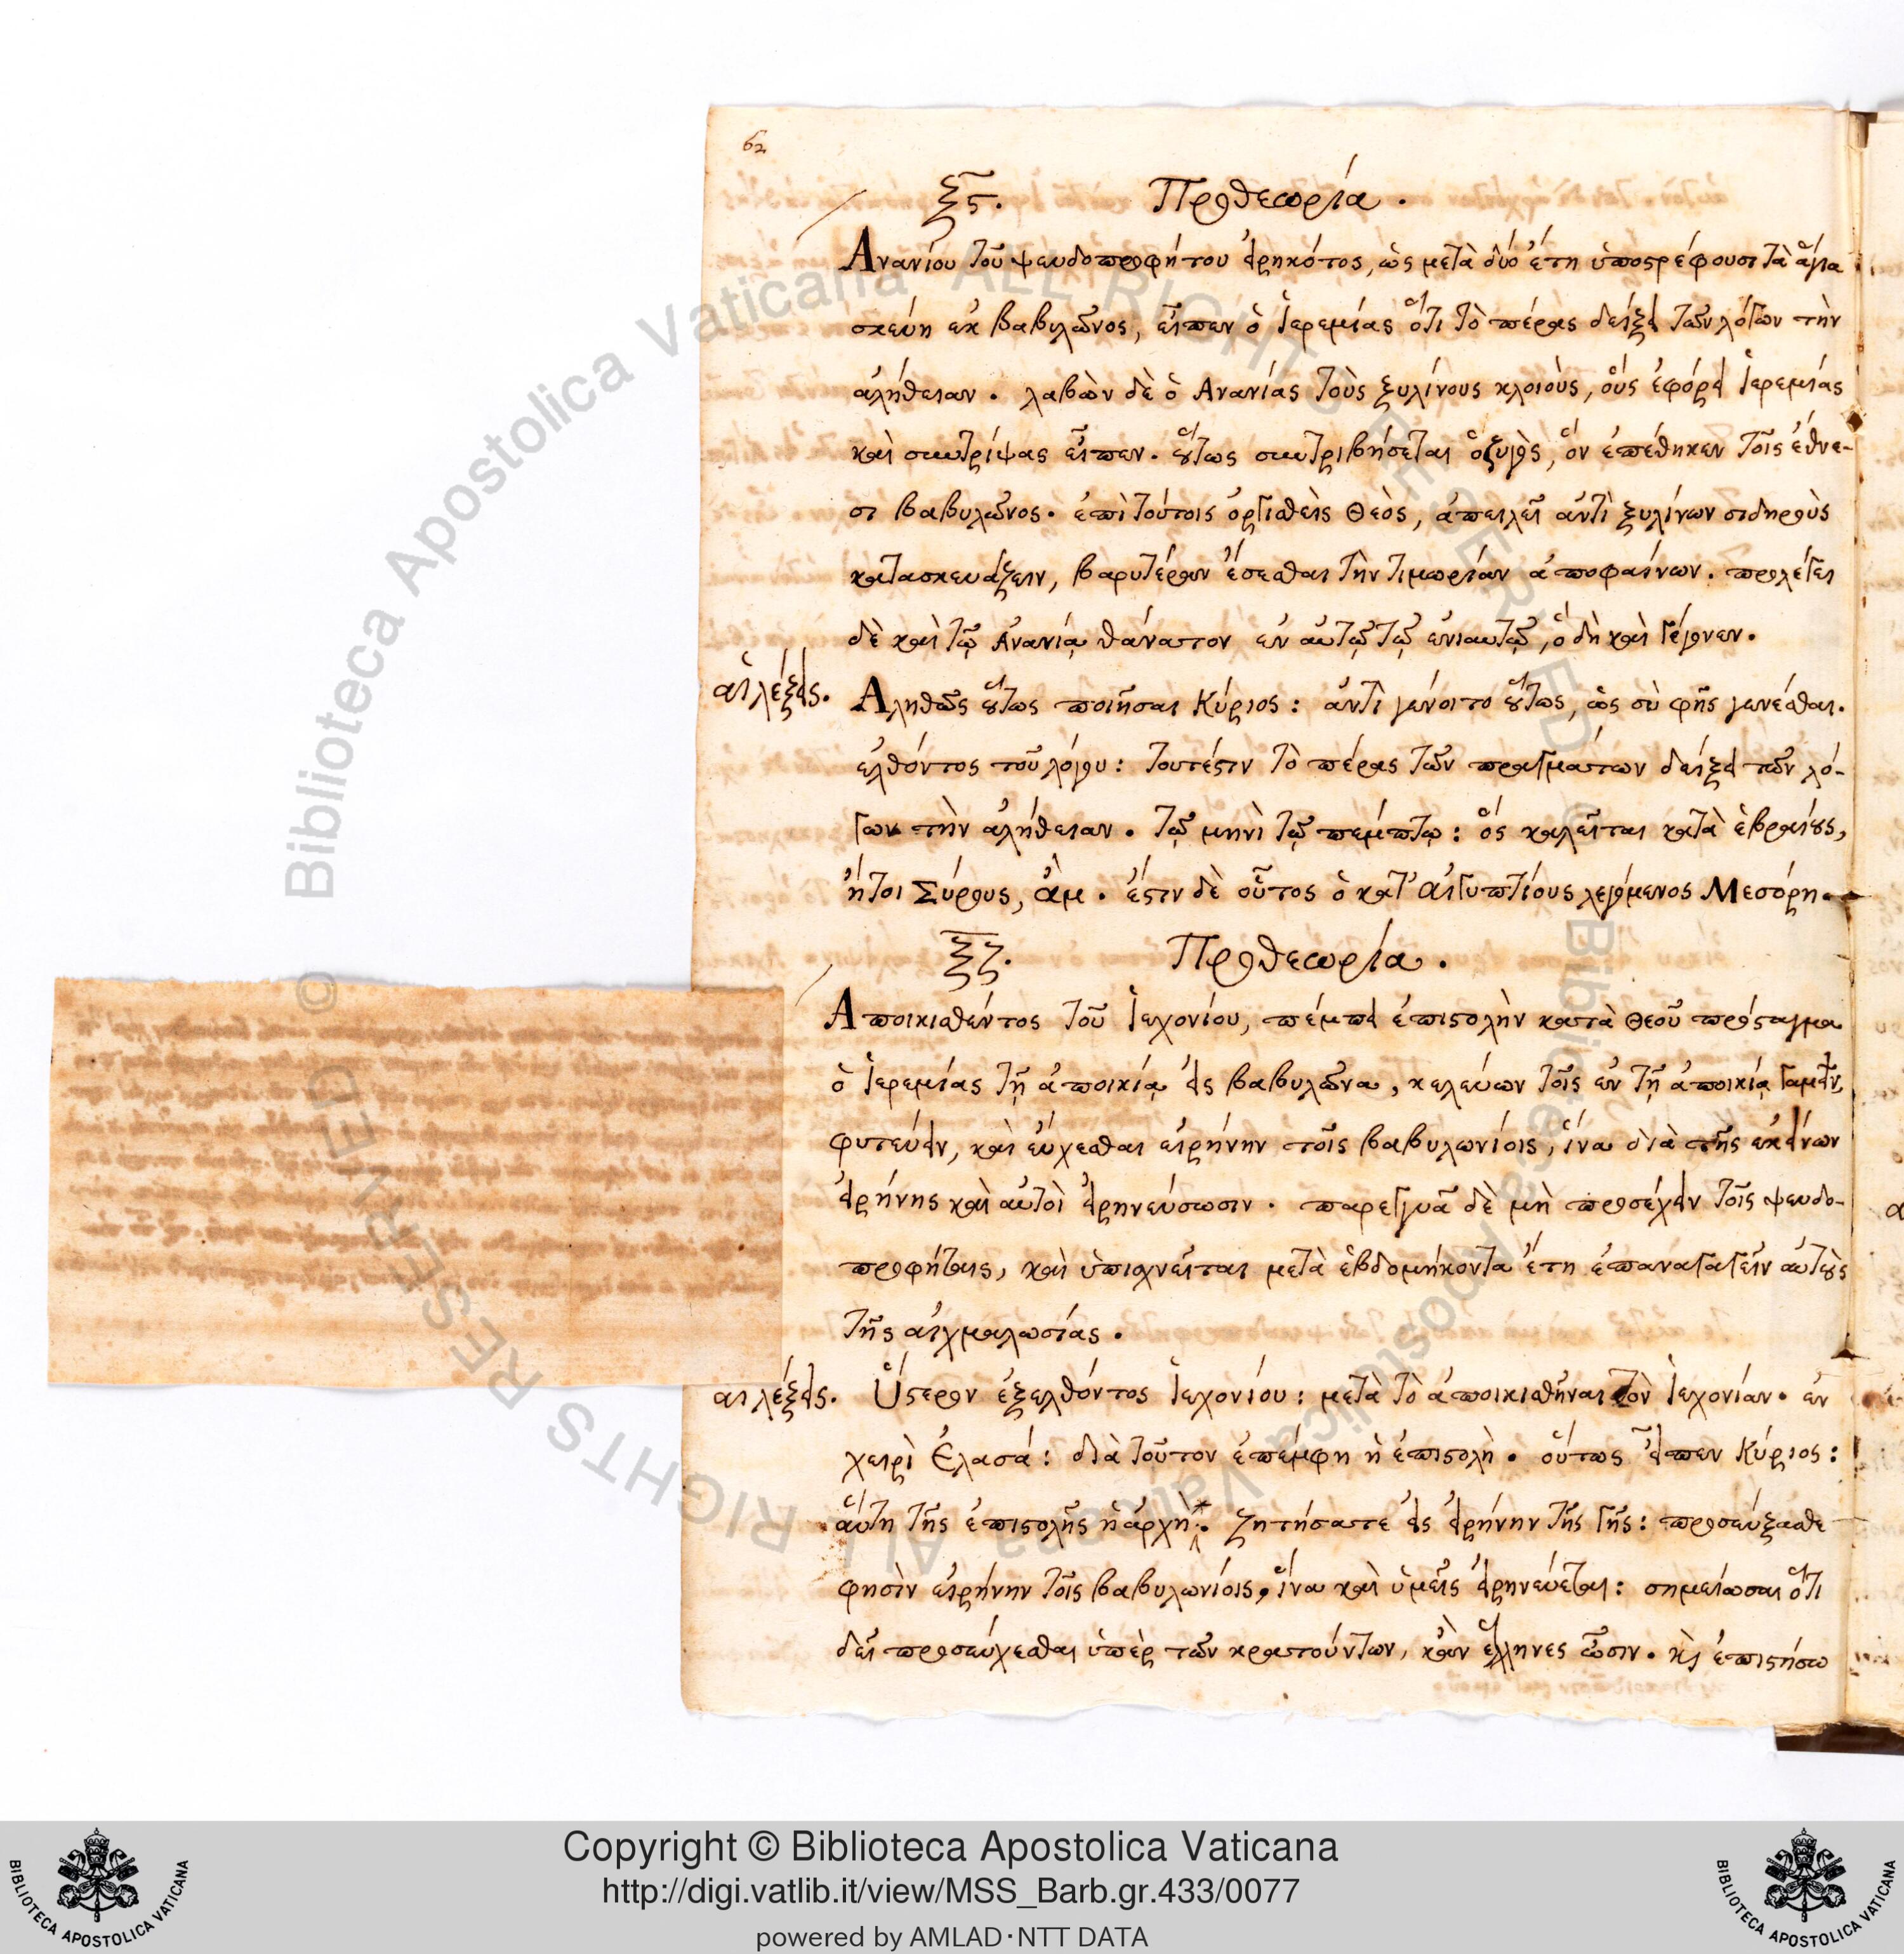 62
ξϛ. Προθεωρία.
Ανανίου τοῦ ψευδοπροφήτου εἰρηκότος, ὡς μετὰ δύο ἔτη ὑποστρέφουσι τὰ ἅγια
σκεύη ἐκ βαβυλῶνος, εἶπεν ὁ Ἱερεμίας ὅτι τὸ πέρας δείξει τῶν λόγων τὴν
ἀλήθειαν. λαβὼν δὲ ὁ Ανανίας τοὺς ξυλίνους κλοιοὺς, οὓς ἐφόρει Ἱερεμίας
καὶ συντρίψας εἶπεν. οὕτως συντριβήσεται ὁ ζυγὸς, ὃν ἐπέθηκεν τοῖς ἔθνε-
σι βαβυλῶνος. ἐπὶ τούτοις ὀργισθεὶς Θεὸς, ἀπειλεῖ ἀντὶ ξυλίνων σιδηροῦς
κατασκευάζειν, βαρυτέραν ἔσεσθαι τὴν τιμωρίαν ἀποφαίνων. προλέγει
δὲ καὶ τῷ Ἀνανίᾳ θάνατον ἐν αὐτῷ τῷ ἐνιαυτῷ, ὃ δὴ καὶ γέγονεν.
αἱ λέξεις. Αληθῶς οὕτως ποιῆσαι Κύριος: ἀντὶ γένοιτο οὕτως, ὡς σὺ φῂς γενέσθαι.
ἐλθόντος τοῦ λόγου: τουτέστιν τὸ πέρας τῶν πραγμάτων δείξει τῶν λό-
γων τὴν ἀλήθειαν. τῷ μηνὶ τῷ πέμπτῳ: ὃς καλεῖται κατὰ ἑβραίους,
ἤτοι Σύρους, ἂμ. ἔστιν δὲ οὗτος ὁ κατ' αἰγυπτίους λεγόμενος Μεσόρη.
ξζ. Προθεωρία.
Αποικισθέντος τοῦ Ἰεχονίου, πέμπει ἐπιστολὴν κατὰ Θεοῦ πρόσταγμα
ὁ Ἱερεμίας τῇ ἀποικίᾳ εἰς βαβυλῶνα, κελεύων τοῖς ἐν τῇ ἀποικίᾳ γαμεῖν,
φυτεύειν, καὶ εὔχεσθαι εἰρήνην τοῖς βαβυλωνίοις, ἵνα διὰ τῆς ἐκείνων
εἰρήνης καὶ αὐτοὶ εἰρηνεύσωσιν. παρεγγυᾶ δὲ μὴ προσέχειν τοῖς ψευδο-
προφήταις, καὶ ὑπισχνεῖται μετὰ ἑβδομήκοντα ἔτη ἐπαναγαγεῖν αὐτοὺς
τῆς αἰχμαλωσίας.
αἱ λέξεις. Ὕστερον ἐξελθόντος Ἰεχονίου: μετὰ τὸ ἀποικισθῆναι τὸν Ἰεχονίαν. ἐν
χειρὶ Ἐλασά: διὰ τοῦτον ἐπέμφη ἡ ἐπιστολὴ. οὕτως εἶπεν Κύριος:
αὕτη τῆς ἐπιστολῆς ἡ ἀρχὴ. ζητήσατε εἰς εἰρήνην τῆς γῆς: προσεύξασθε
φησὶν εἰρήνην τοῖς βαβυλωνίοις, ἵνα καὶ ὑμεῖς εἰρηνεύεται: σημείωσαι ὅτι
δεῖ προσεύχεσθαι ὑπὲρ τῶν κρατούντων, κἂν ἕλληνες ὦσιν. κỳ ἐπιστήσω
Copyright © Biblioteca Apostolica Vaticana
http://digi.vatlib.it/view/MSS_Barb.gr.433/0077
powered by AMLAD·NTT DATA